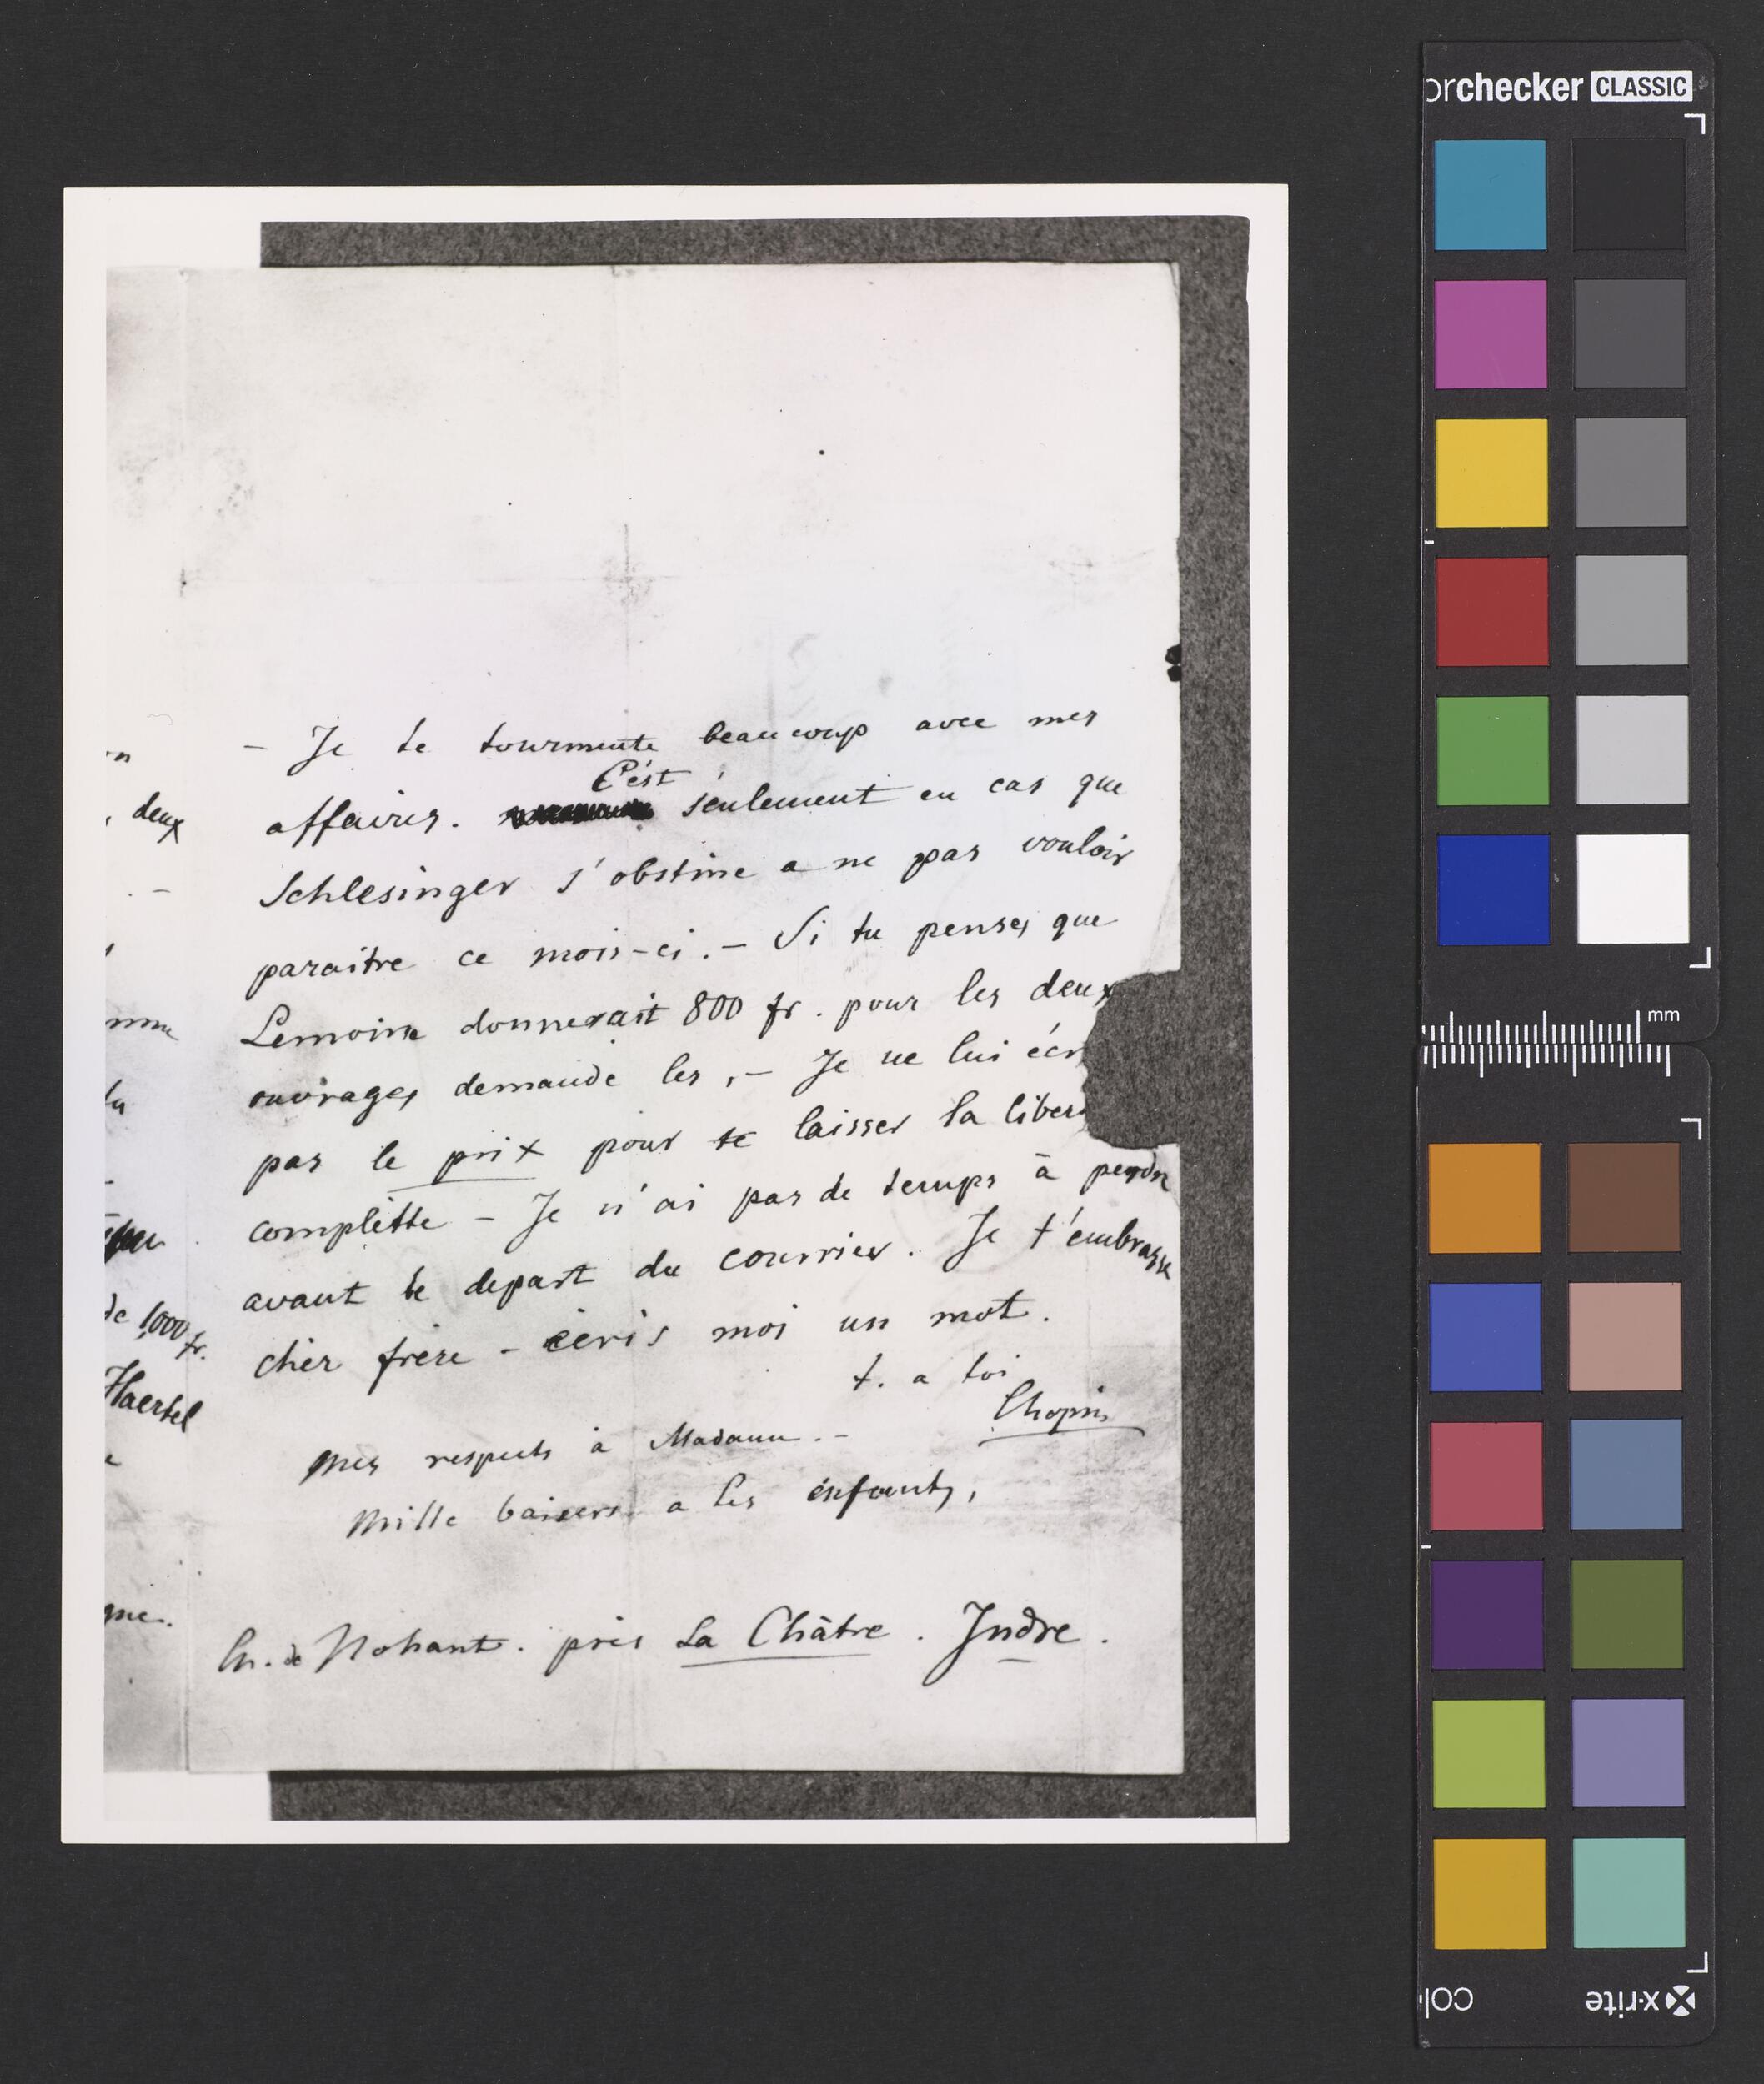 n
deux
nme
tu
de 1000 fr.
Haertel
me.
– Je te tourmente beaucoup avec mes
C'est
affaires. seulement en cas que
Schlesinger s'obstine a ne pas vouloir
paraitre ce mois-ci. – Si tu penses que
Lemoine donnerait 800 fr. pour les deux
ouvrages demande les, – Je ne lui écr
pas le prix pour te laisser la liber
complètte – Je n'ai pas de temps à perdre
avant le depart du courrier. Je t'embrasse
cher frère – écris moi un mot.
t. a toi
Chopin
Mes respects à Madame. –
Mille baisers a tes enfants,
Ch. de Nohant. près La Châtre. Indre.
orchecker CLASSIC
mm
x-rite
col